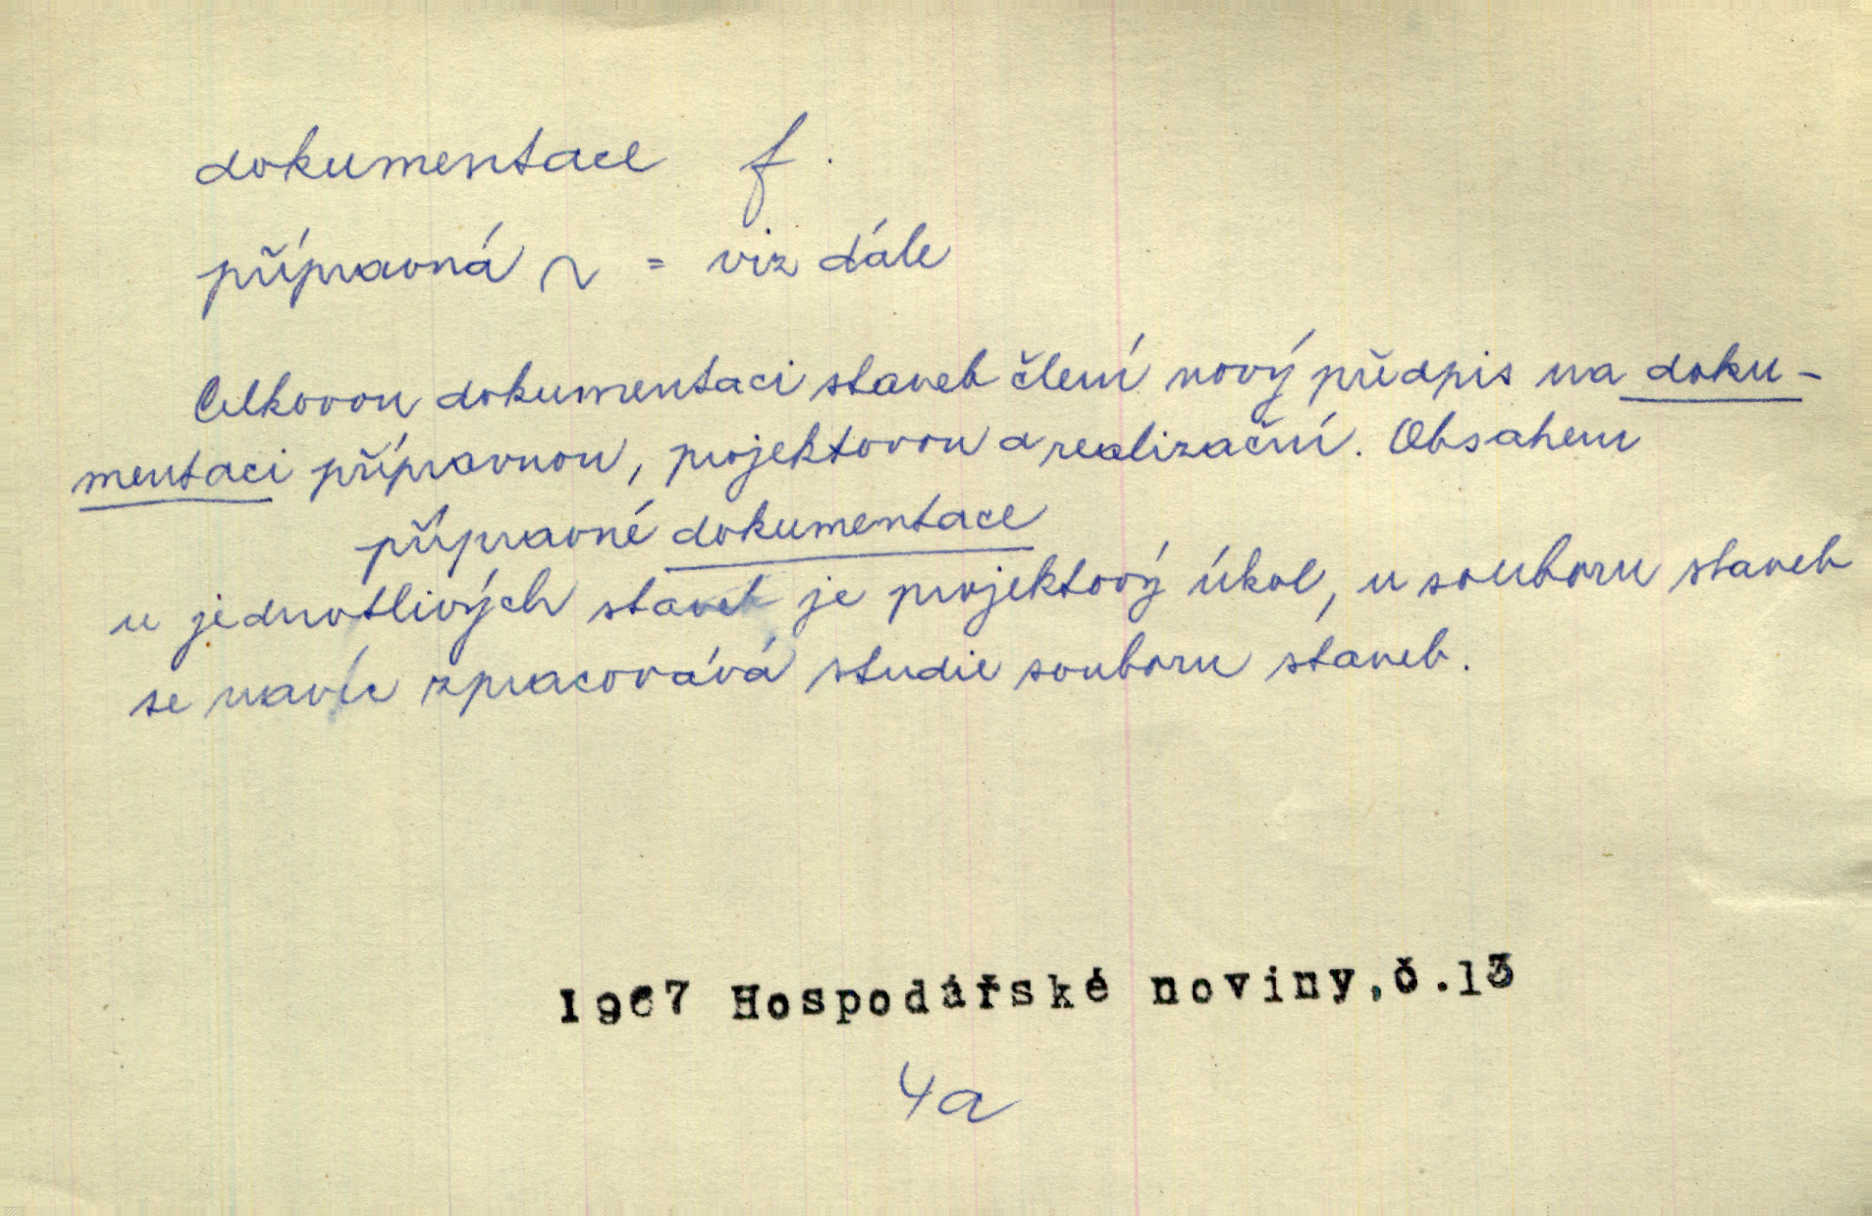 dokumentace f.
přípravná ~ = viz dále
Celkovou dokumentaci staveb člení nový předpis na doku-
mentaci přípravnou, projektovou a realizační. Obsahem
přípravné dokumentace
u jednotlivých staveb je projektový úkol, u souboru staveb
se navíc zpracovává studie souboru staveb.
1967 Hospodářské noviny,č.13
4a